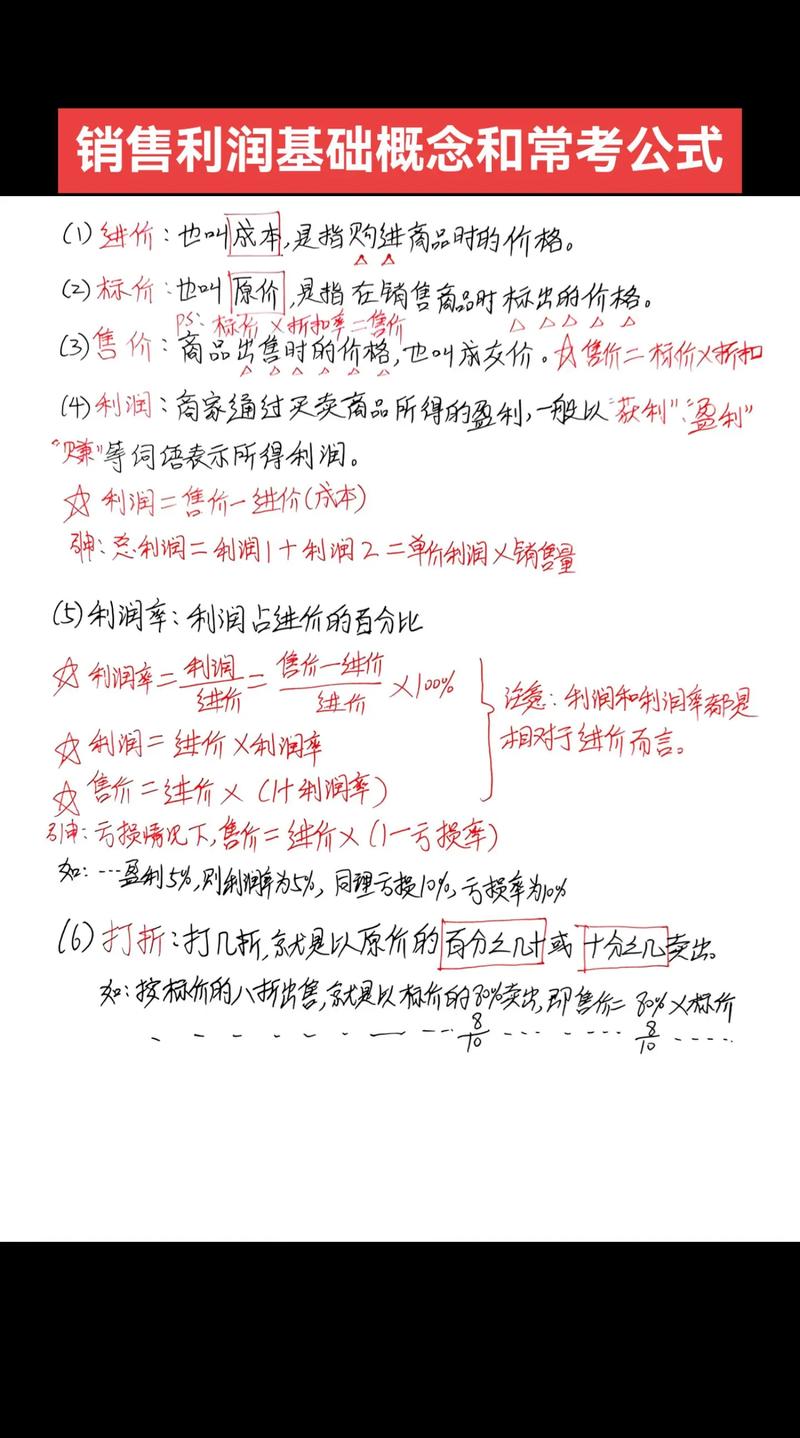 销售利润基础概念和常考公式
(1)进价:也叫成本,是指购进商品时的价格。
(2)标价:也叫原价,是指在销售商品时标出的价格。
PS:标价×折扣率=售价
(3)售价:商品出售时的价格,也叫成交价。☆售价=标价×折扣
(4)利润:商家通过买卖商品所得的盈利,一般以"获利"、"盈利"
"赚"等词语表示所得利润。
☆利润=售价-进价(成本)
引申:总利润=利润1+利润2=单价利润×销售量
(5)利润率:利润占进价的百分比
☆利润率=利润/进价=售价-进价/进价×100%
☆利润=进价×利润率
☆售价=进价×(1+利润率)
注意:利润和利润率都是
相对于进价而言。
引申:亏损情况下,售价=进价×(1-亏损率)
如:…盈利5%,则利润率为5%,同理亏损10%,亏损率为10%
(6)打折:打几折,就是以原价的百分之几十或十分之几卖出。
如:按标价的八折出售,就是以标价的80%卖出,即售价=80%×标价
8/10 8/10